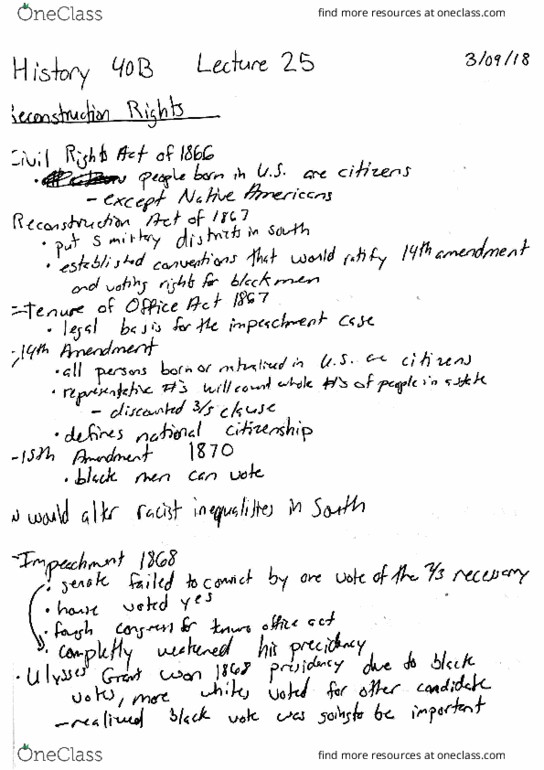 OneClass find more resources at oneclass.com
History 40B Lecture 25 3/09/18
Reconstruction Rights
Civil Rights Act of 1866
• people born in U.S. are citizens
- except Native Americans
Reconstruction Act of 1867
• put 5 miltary districts in south
• established conventions that would ratify 14th amendment
and voting rights for black men
- Tenure of Office Act 1867
• legal basis for the impeachment case
- 14th Amendment
• all persons born or naturalized in U.S. are citizens
• representative #'s will count whole #'s of people in a state
- discounted 3/5 clause
• defines national citizenship
- 15th Amendment 1870
• black men can vote
would alter racist inequalities in South
- Impeachment 1868
• senate failed to convict by one vote of the 2/3 necessary
• house voted yes
• congress for tenure office act
• completly weakened his precidency
• Ulysses Grant won 1868 presidency due to black
votes, more whites voted for other candidate
- realized black vote was going to be important
OneClass find more resources at oneclass.com